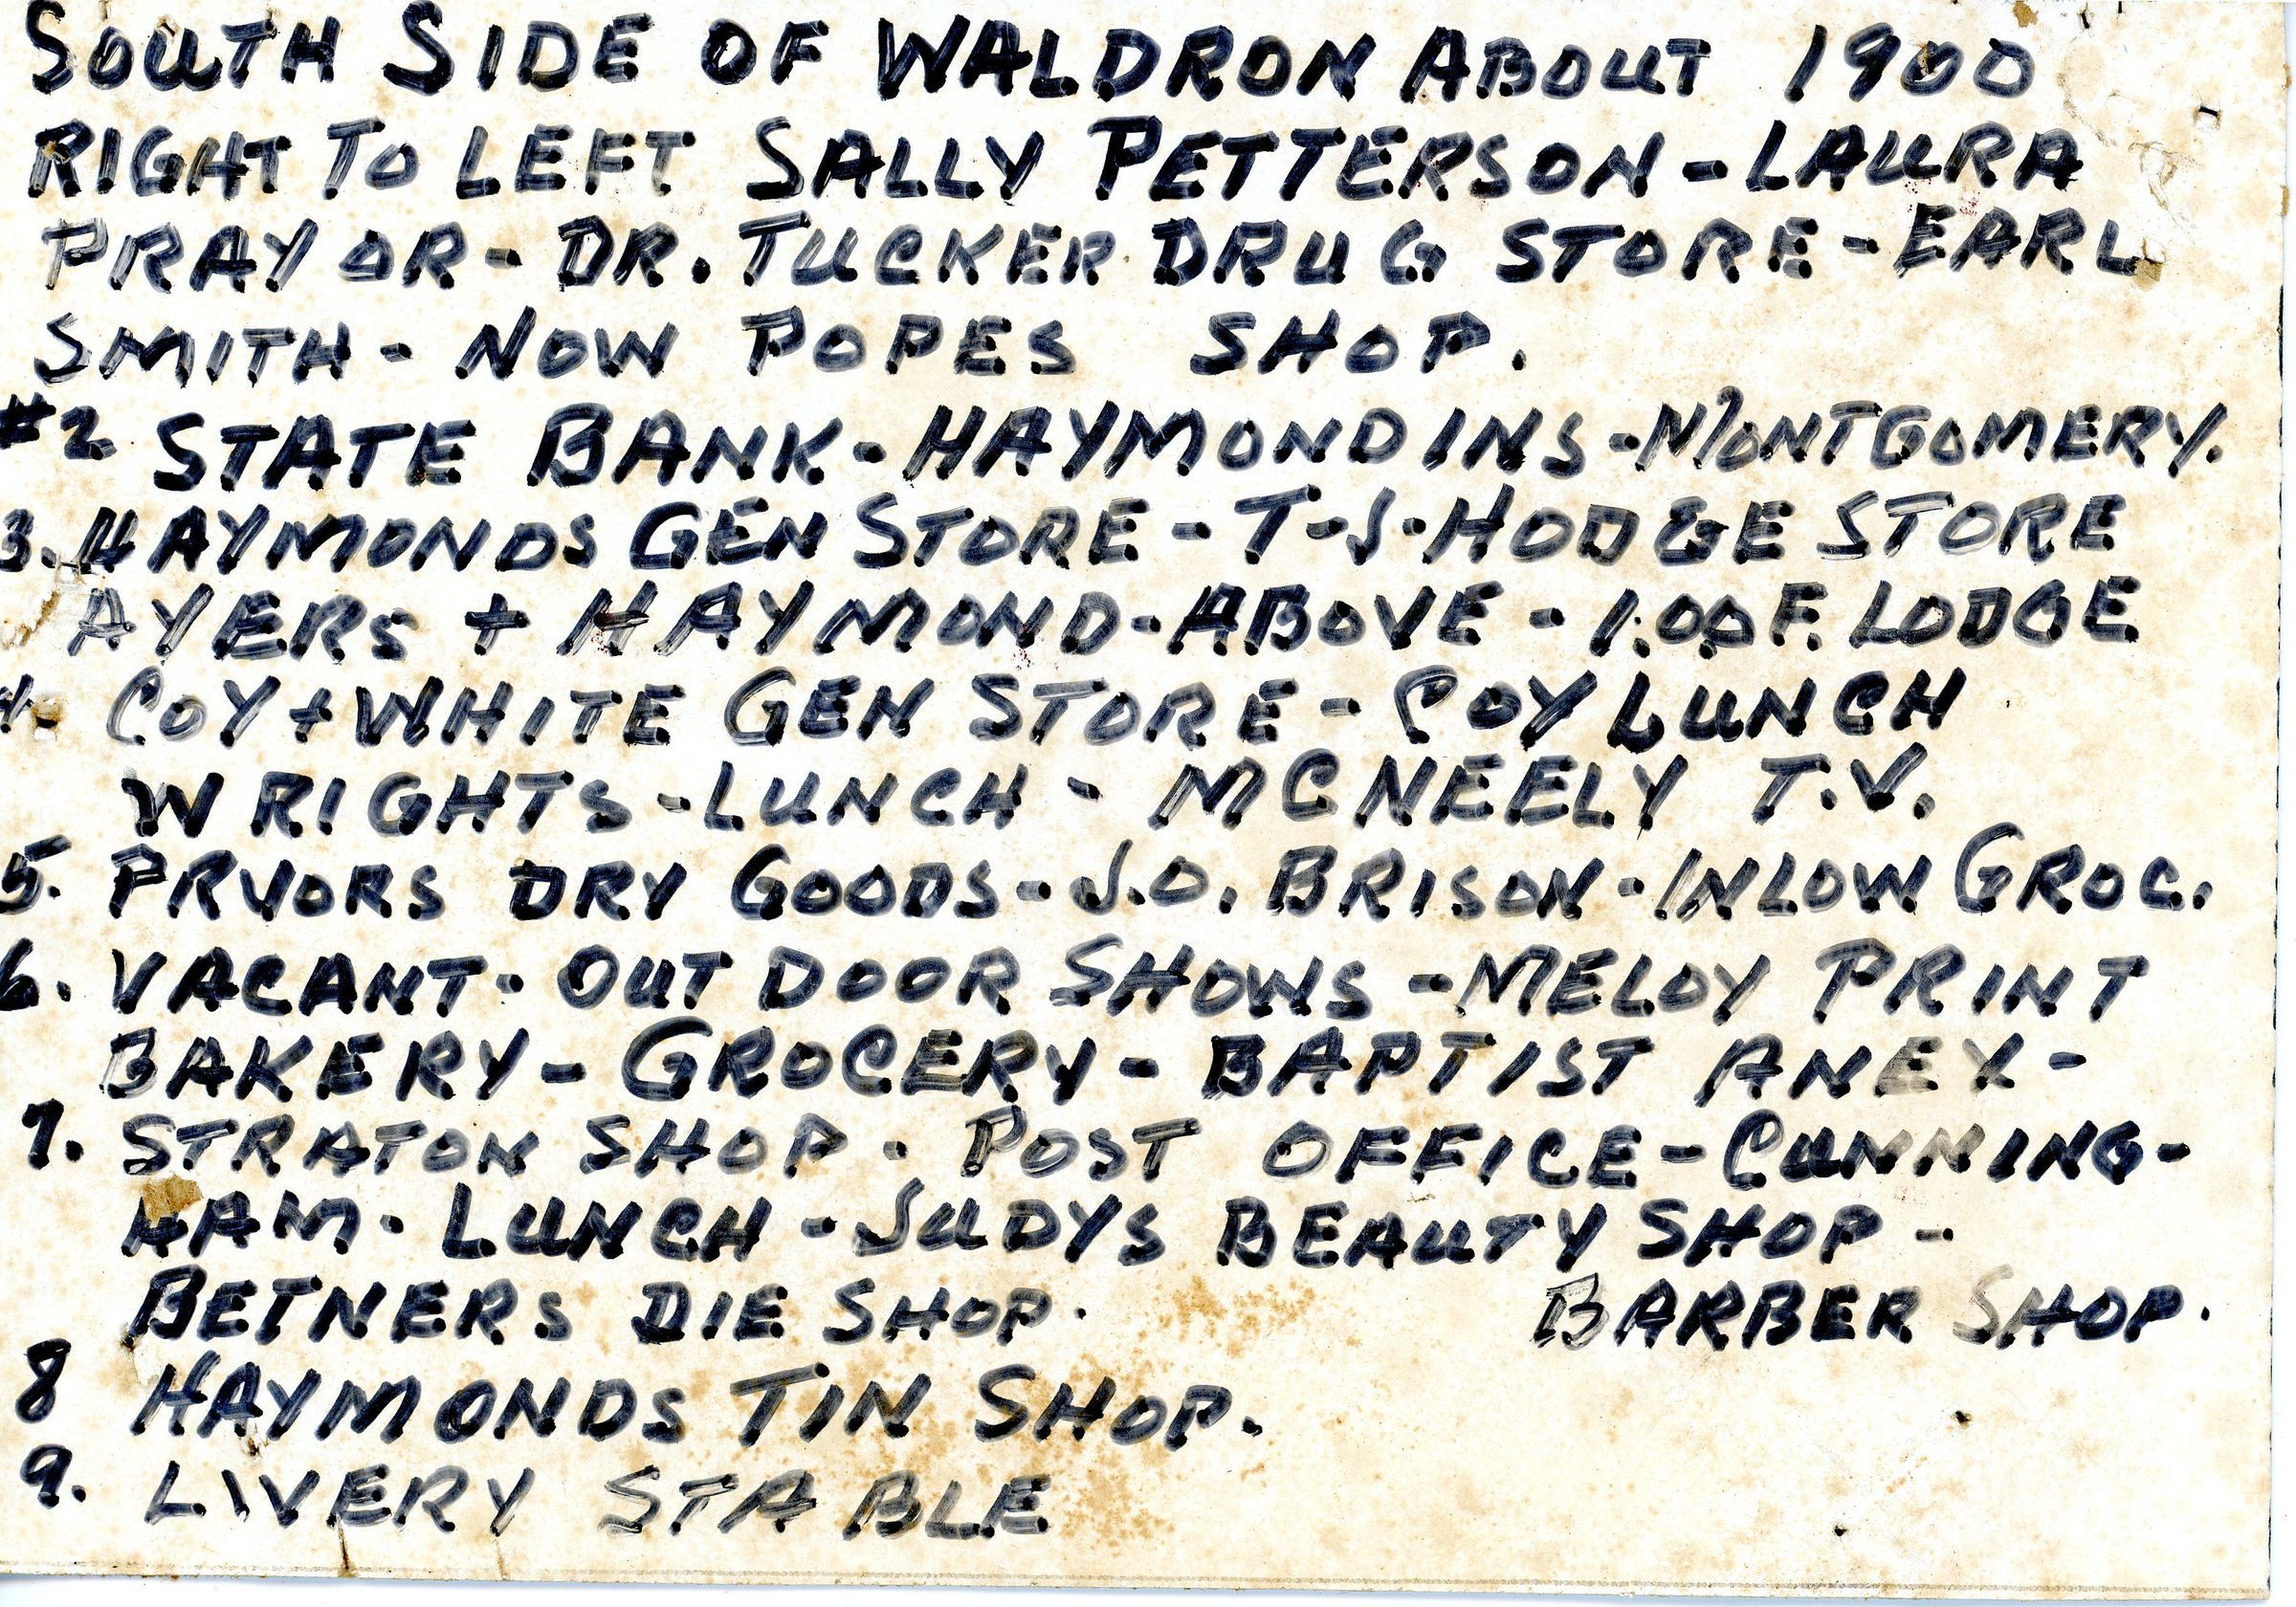 SOUTH SIDE OF WALDRON ABOUT 1900
RIGHT TO LEFT SALLY PETTERSON - LAURA
PRAYOR - DR. TUCKER DRUG STORE - EARL
SMITH - NOW POPES SHOP.
#2 STATE BANK - HAYMOND INS - MONTGOMERY.
3. HAYMONDS GEN STORE - T-J-HODGE STORE
AYERS + HAYMOND - ABOVE - I.OOF. LODGE
4. COY + WHITE GEN STORE - COY LUNCH
WRIGHTS - LUNCH - MCNEELY T.V.
5. PRYORS DRY GOODS - J.O. BRISON - INLOW GROC.
6. VACANT - OUT DOOR SHOWS - MELOY PRINT
BAKERY - GROCERY - BAPTIST ANEX -
7. STRATON SHOP - POST OFFICE - CUNNING-
HAM - LUNCH - JUDYS BEAUTY SHOP -
BETNERS DIE SHOP. BARBER SHOP.
8 HAYMONDS TIN SHOP.
9. LIVERY STABLE